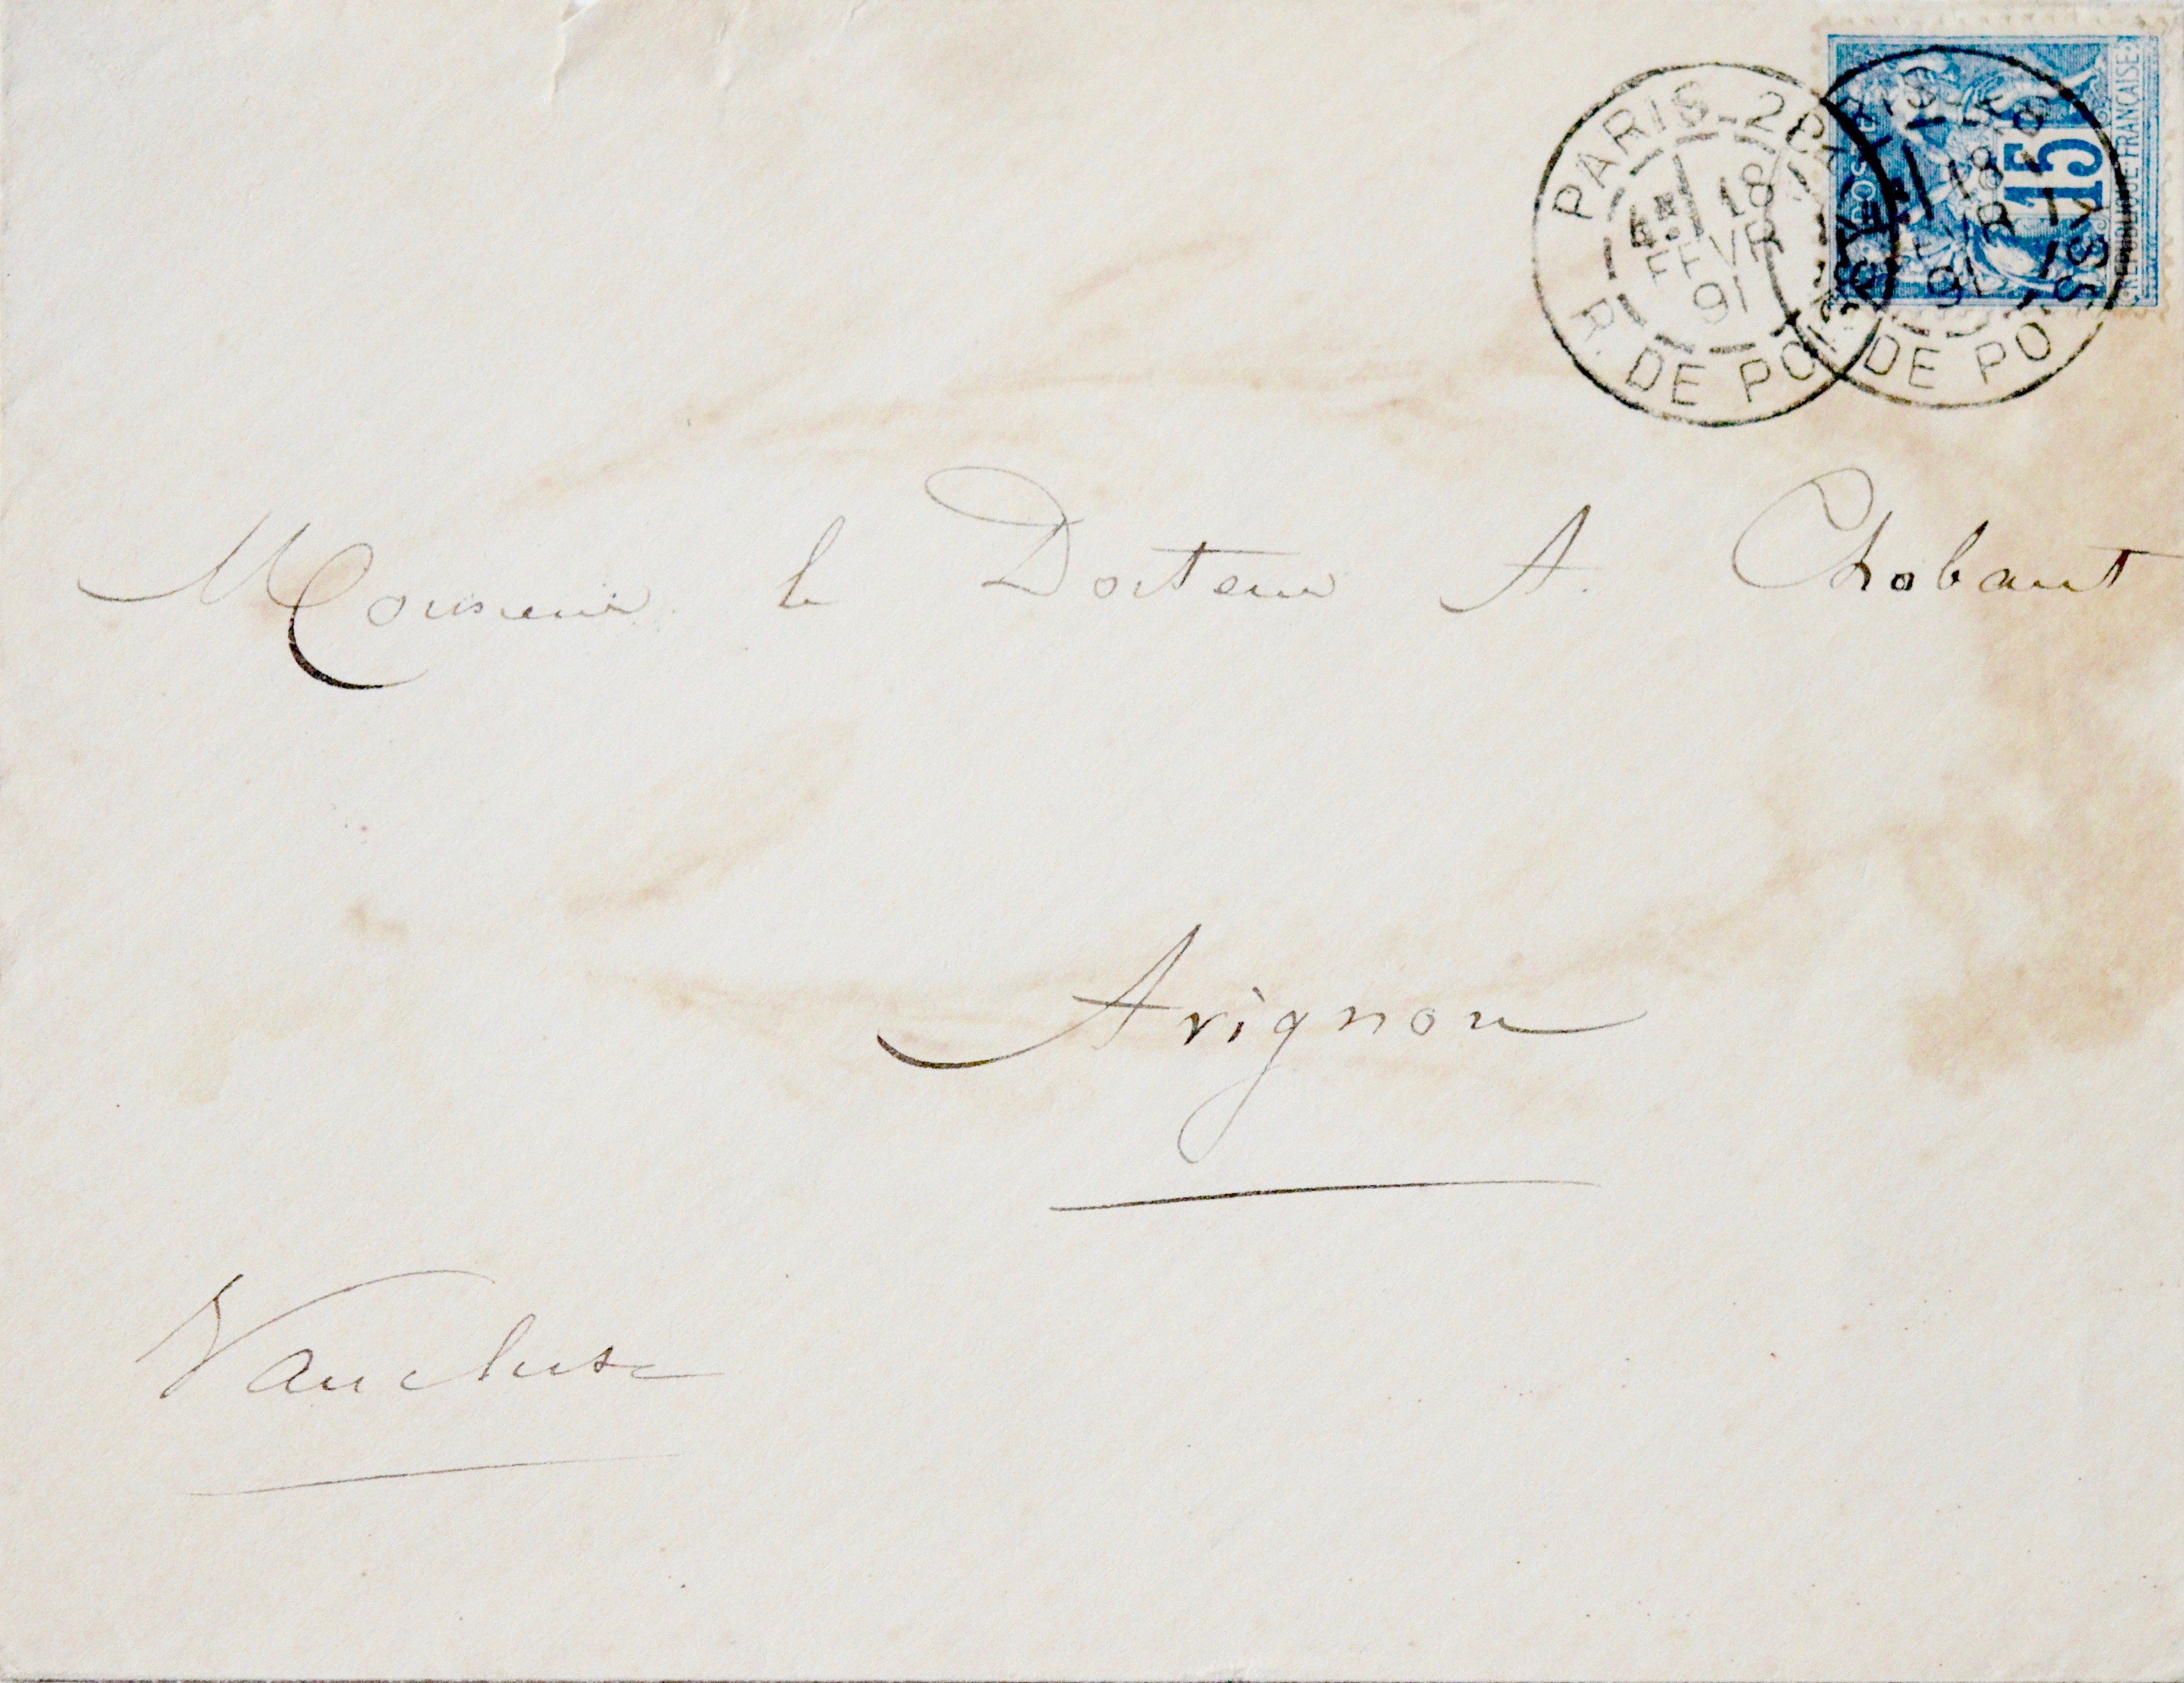 PARIS-28
18
FEVR
91
R. DE POISSY
18
91
DE POISSY
POSTES
15
REPUBLIQUE FRANCAISE
Monsieur le Docteur A. Chobaut
Avignon
Vaucluse